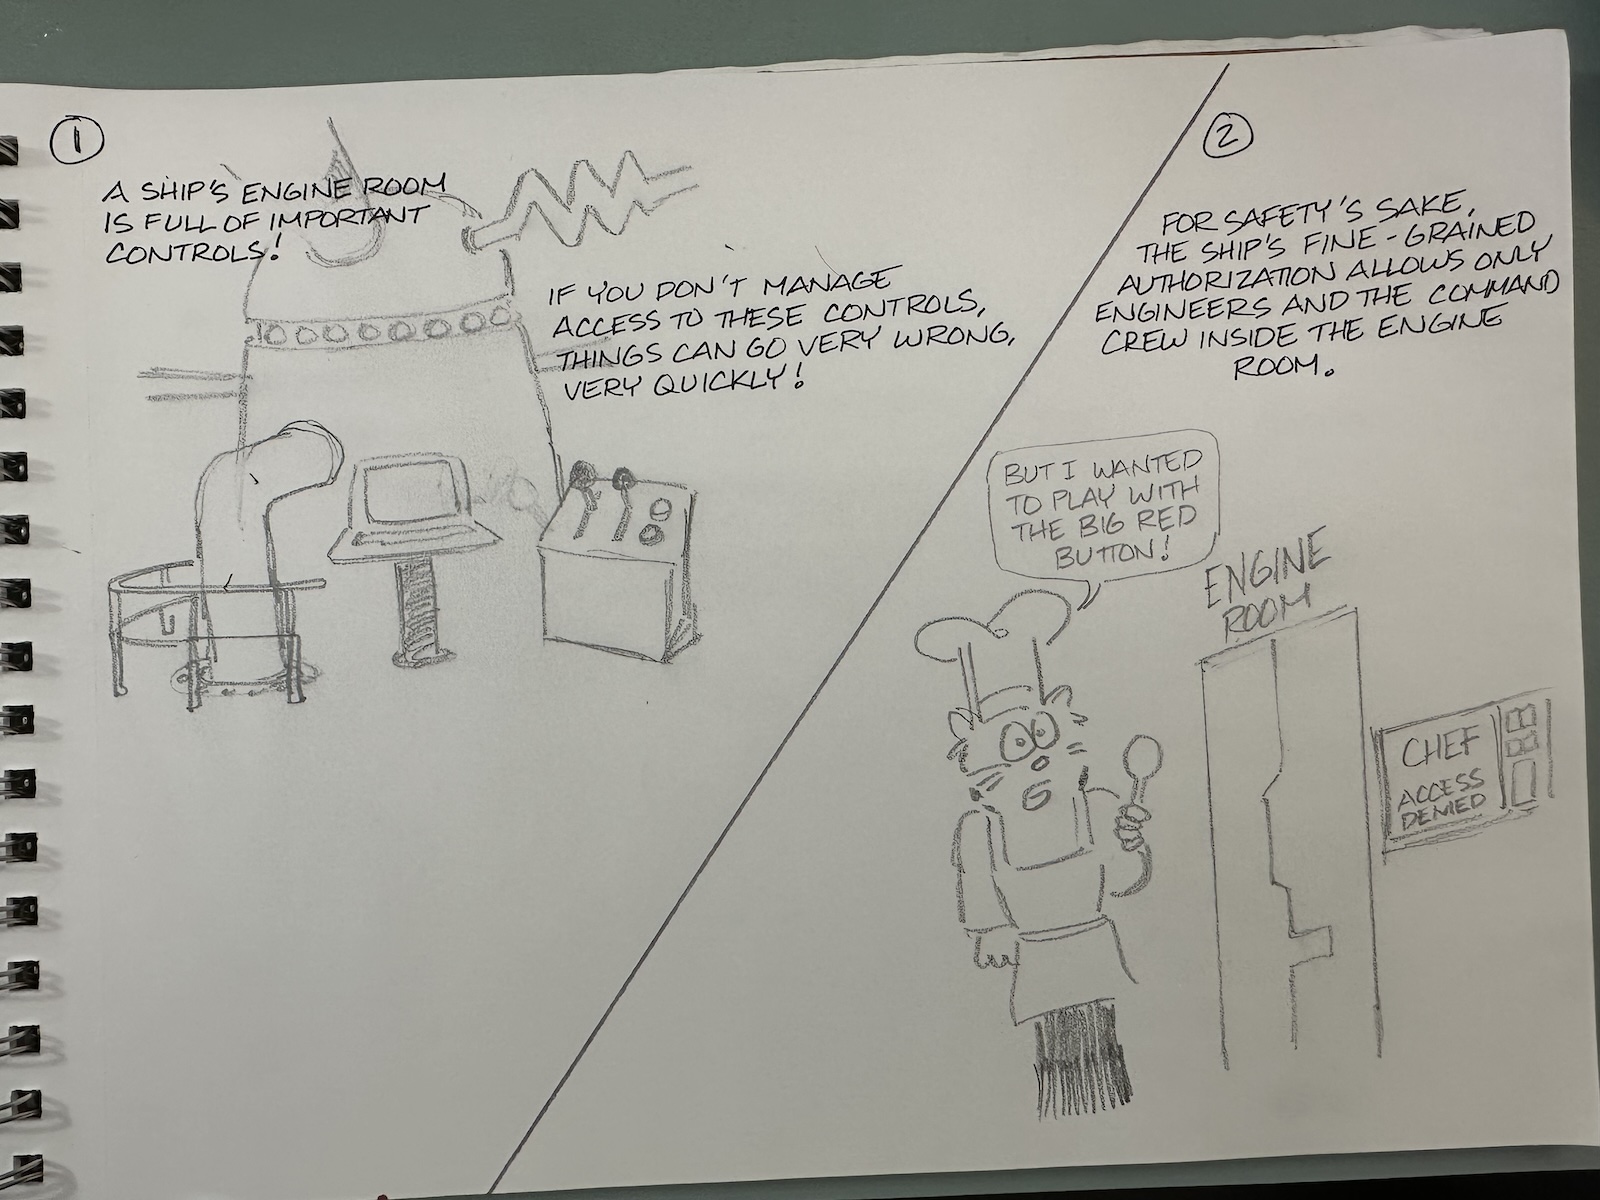 1
A SHIP'S ENGINE ROOM
IS FULL OF IMPORTANT
CONTROLS!
IF YOU DON'T MANAGE
ACCESS TO THESE CONTROLS,
THINGS CAN GO VERY WRONG,
VERY QUICKLY!
2
FOR SAFETY'S SAKE,
THE SHIP'S FINE-GRAINED
AUTHORIZATION ALLOWS ONLY
ENGINEERS AND THE COMMAND
CREW INSIDE THE ENGINE
ROOM.
BUT I WANTED
TO PLAY WITH
THE BIG RED
BUTTON!
ENGINE
ROOM
CHEF
ACCESS
DENIED